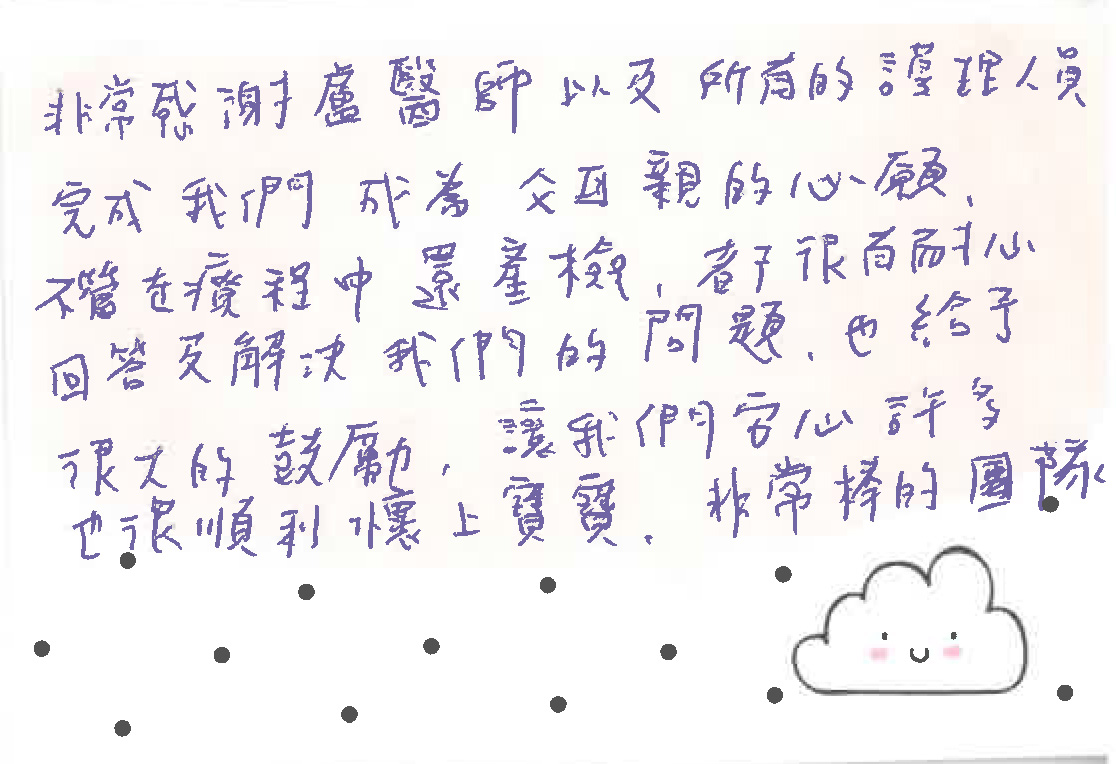 非常感謝盧醫師以及所有的護理人員
完成我們成為父母親的心願、
不管在療程中還產檢、都很有耐心
回答及解決我們的問題、也給予
很大的鼓勵,讓我們安心許多
也很順利懷上寶寶. 非常棒的團隊